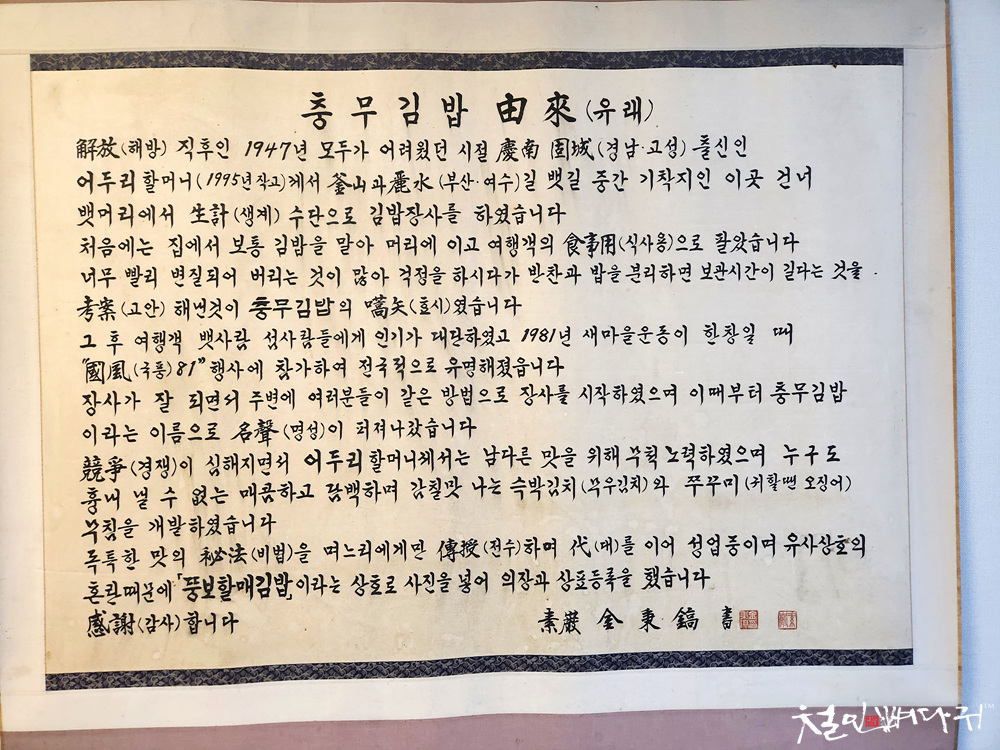 충무김밥 由來(유래)
解放(해방) 직후인 1947년 모두가 어려웠던 시절 慶南 固城(경남·고성) 출신인
어두리할머니(1995년작고)께서 釜山과麗水(부산·여수)길 뱃길 중간 기착지인 이곳 건너
뱃머리에서 生計(생계) 수단으로 김밥장사를 하였습니다
처음에는 집에서 보통 김밥을 말아 머리에 이고 여행객의 食事用(식사용)으로 팔았습니다
너무 빨리 변질되어 버리는 것이 많아 걱정을 하시다가 반찬과 밥을 분리하면 보관시간이 길다는 것을
考案(고안) 해낸것이 충무김밥의 嚆矢(효시)였습니다
그 후 여행객 뱃사람 섬사람들에게 인기가 대단하였고 1981년 새마을운동이 한창일 때
"國風(국풍)81" 행사에 참가하여 전국적으로 유명해졌습니다
장사가 잘 되면서 주변에 여러분들이 같은 방법으로 장사를 시작하였으며 이때부터 충무김밥
이라는 이름으로 名聲(명성)이 퍼져나갔습니다
競爭(경쟁)이 심해지면서 어두리할머니께서는 남다른 맛을 위해 무척 노력하였으며 누구도
흉내 낼 수 없는 매콤하고 담백하며 감칠맛 나는 슥박김치(무우김치)와 쭈꾸미(귀할땐 오징어)
무침을 개발하였습니다
독특한 맛의 秘法(비법)을 며느리에게만 傳授(전수)하며 代(대)를 이어 성업중이며 유사상호의
혼란때문에「풍보할매김밥」이라는 상호로 사진을 넣어 의장과 상표등록을 했습니다
感謝(감사)합니다
素巖 金秉鎬 書
철민뼈다귀